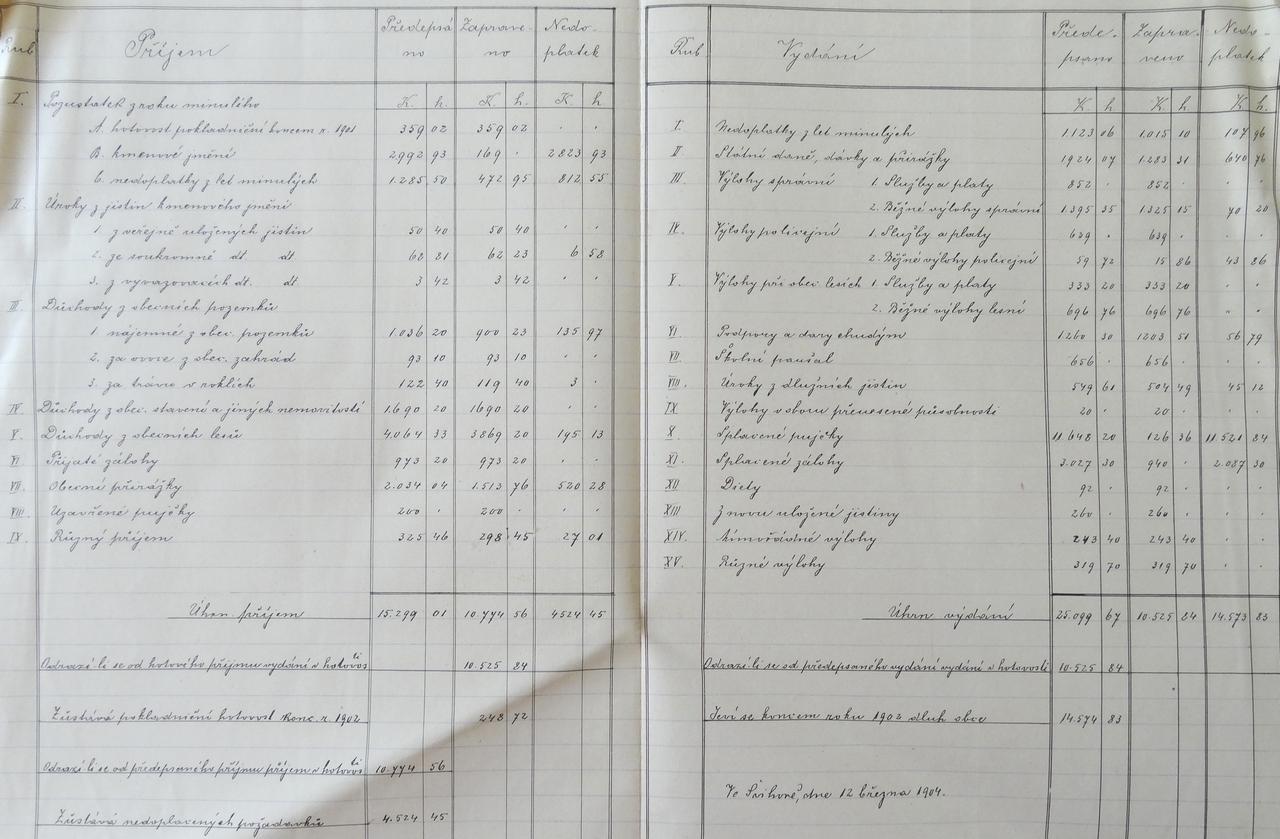 Rub. Příjem Předepsáno Zapraveno Nedoplatek
K. h. K. h. K h.
I. Pozustatek z roku minulého
A. hotovost pokladniční koncem r. 1901 359 02 359 02 · ·
B. kmenové jmění 2992 93 169 · 2823 93
C. nedoplatky z let minulých 1.285 50 472 95 812 55
II. Úroky z jistin kmenového jmění
1. z veřejně uložených jistin 50 40 50 40 · ·
2. ze soukromně dt. dt 68 81 62 23 6 58
3. z vyvazovacích dt. dt 3 42 3 42 · ·
III. Důchody z obecních pozemků
1. nájemné z obec. pozemků 1.036 20 900 23 135 97
2. za ovoce z obec. zahrad 93 10 93 10 · ·
3. za trávu v roklích 122 40 119 40 3 ·
IV Důchody z obec. stavení a jiných nemovitostí 1.690 20 1690 20 · ·
V. Důchody z obecních lesů 4.064 33 3869 20 195 13
VI Přijaté zálohy 973 20 973 20 · ·
VII. Obecní přirážky 2.034 04 1.513 76 520 28
VIII. Uzavřené pujčky 200 · 200 · · ·
IX. Různý příjem 325 46 298 45 27 01
Úhrn příjem 15.299 01 10.774 56 4524 45
Odrazí li se od hotového příjmu vydání v hotovosti 10.525 84
Zůstává pokladniční hotovost konc. r. 1902 248 72
Odrazí li se od předepsaného příjmu příjem v hotovosti 10.774 56
Zůstává nedoplacených požadavků 4.524 45
Rub. Vydání Předepsano Zapraveno Nedoplatek
K. h K. h. K h.
I. Nedoplatky z let minulých 1.123 06 1.015 10 107 96
II Státní daně, dávky a přirážky 1924 07 1.283 31 640 76
III Výlohy správní 1. Služby a platy 852 · 852 · · ·
2. Běžné výlohy správní 1.395 35 1.325 15 70 20
IV. Výlohy policejní 1. Služby a platy 639 · 639 · · ·
2. Běžné výlohy policejní 59 72 15 86 43 86
V. Výlohy při obec. lesích 1. Služby a platy 333 20 333 20 · ·
2. Běžné výlohy lesní 696 76 696 76 · ·
VI Podpory a dary chudým 1260 30 1203 51 56 79
VII Školní paušal 656 · 656 · · ·
VIII. Úroky z dlužních jistin 549 61 504 49 45 12
IX Výlohy v oboru přenesené působnosti 20 · 20 · · ·
X Splacené pujčky 11.648 20 126 36 11.521 84
XI. Splacené zálohy 3.027 30 940 · 2.087 30
XII Diety 92 · 92 · · ·
XIII Znovu uložené jistiny 260 · 260 · · ·
XIV. Mimořádné výlohy 243 40 243 40 · ·
XV. Různé výlohy 319 70 319 70 · ·
Úhrn vydání 25.099 67 10.525 84 14.573 83
Odrazí li se od předepsaného vydání vydání v hotovosti 10.525 84
Jeví se koncem roku 1902 dluh obce 14.574 83
dne 12 března 1904.